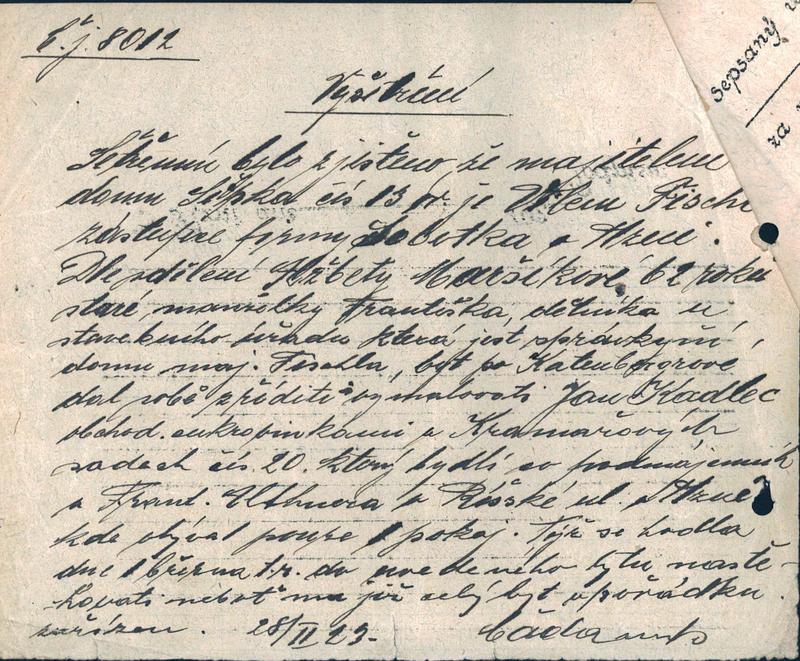 Č.j. 8012
Vyšetření
Šetřením bylo zjištěno, že majitelem
domu čís 13 n. je Vilém Fischl
zástupce firmy Sobotka v Plzni.
Dle sdělení Alžběty Maršíkové 62 roků
staré manželky Františka, dělníka u
stavebního úřadu která jest správkyní
domu maj. Fischla, byt po Katenbergrově
dal sobě zříditi a vymalovati Jan Kadlec
obchod. cukrovinkami v Kramářových
sadech čís. 20. který bydlí co podnájemník
u Frant. v ul. v Plzni
kde obýval pouze 1 pokoj. Týž se hodlá
dne 1 března t.r. do uvedeného bytu nastě-
hovati neboť má již celý byt v pořádku
zařízen. 28/II 23.
Sepsaný
za